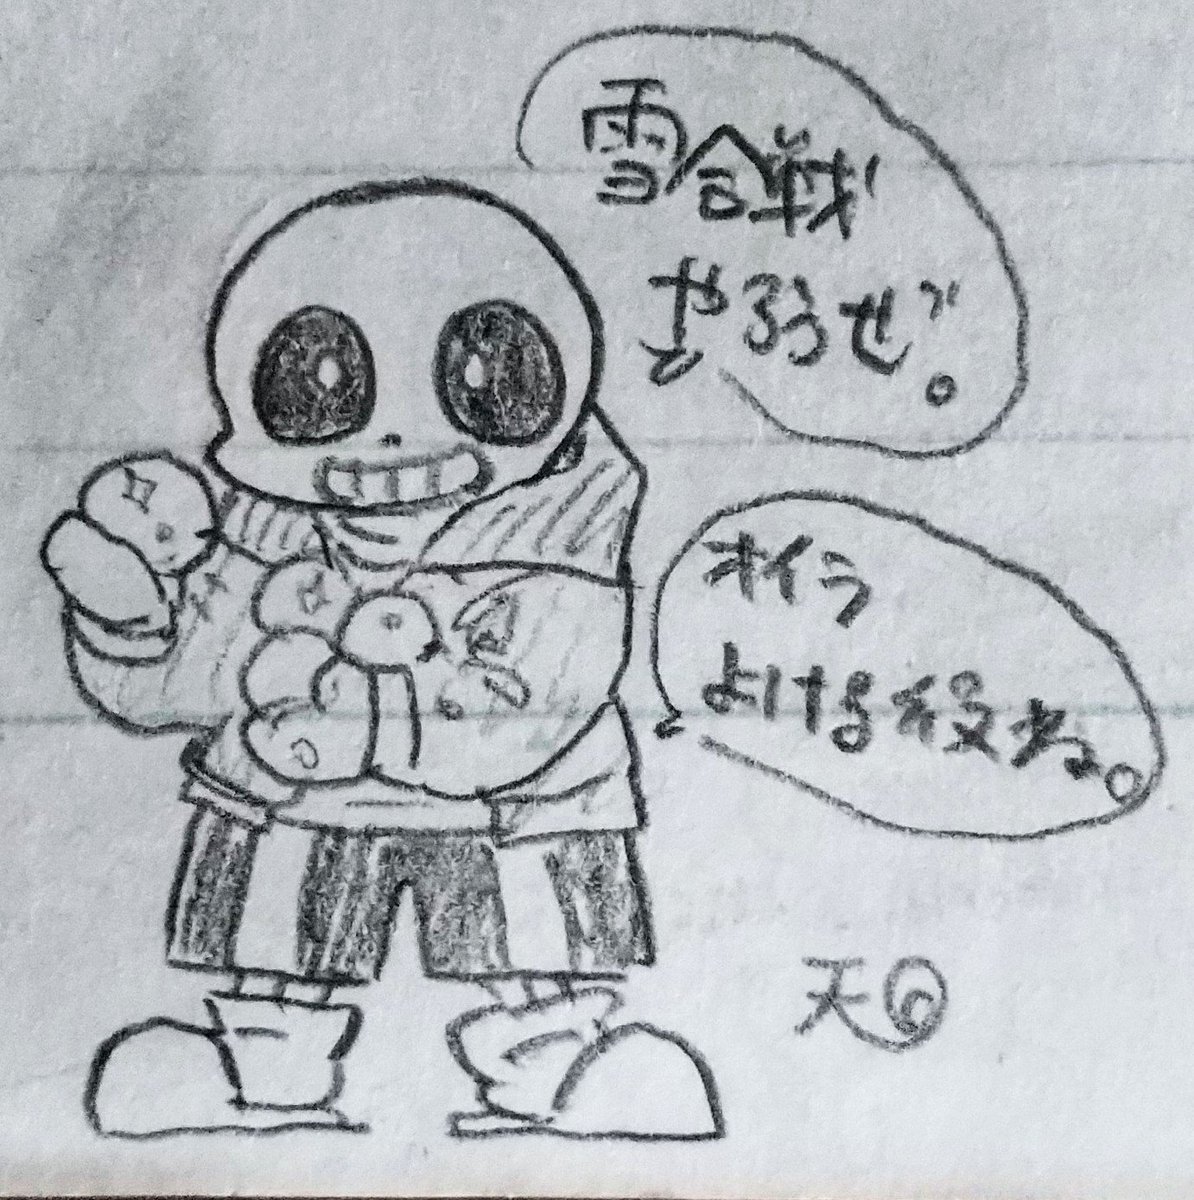 雪合戦
やろうぜ。
オイラ
よける役な。